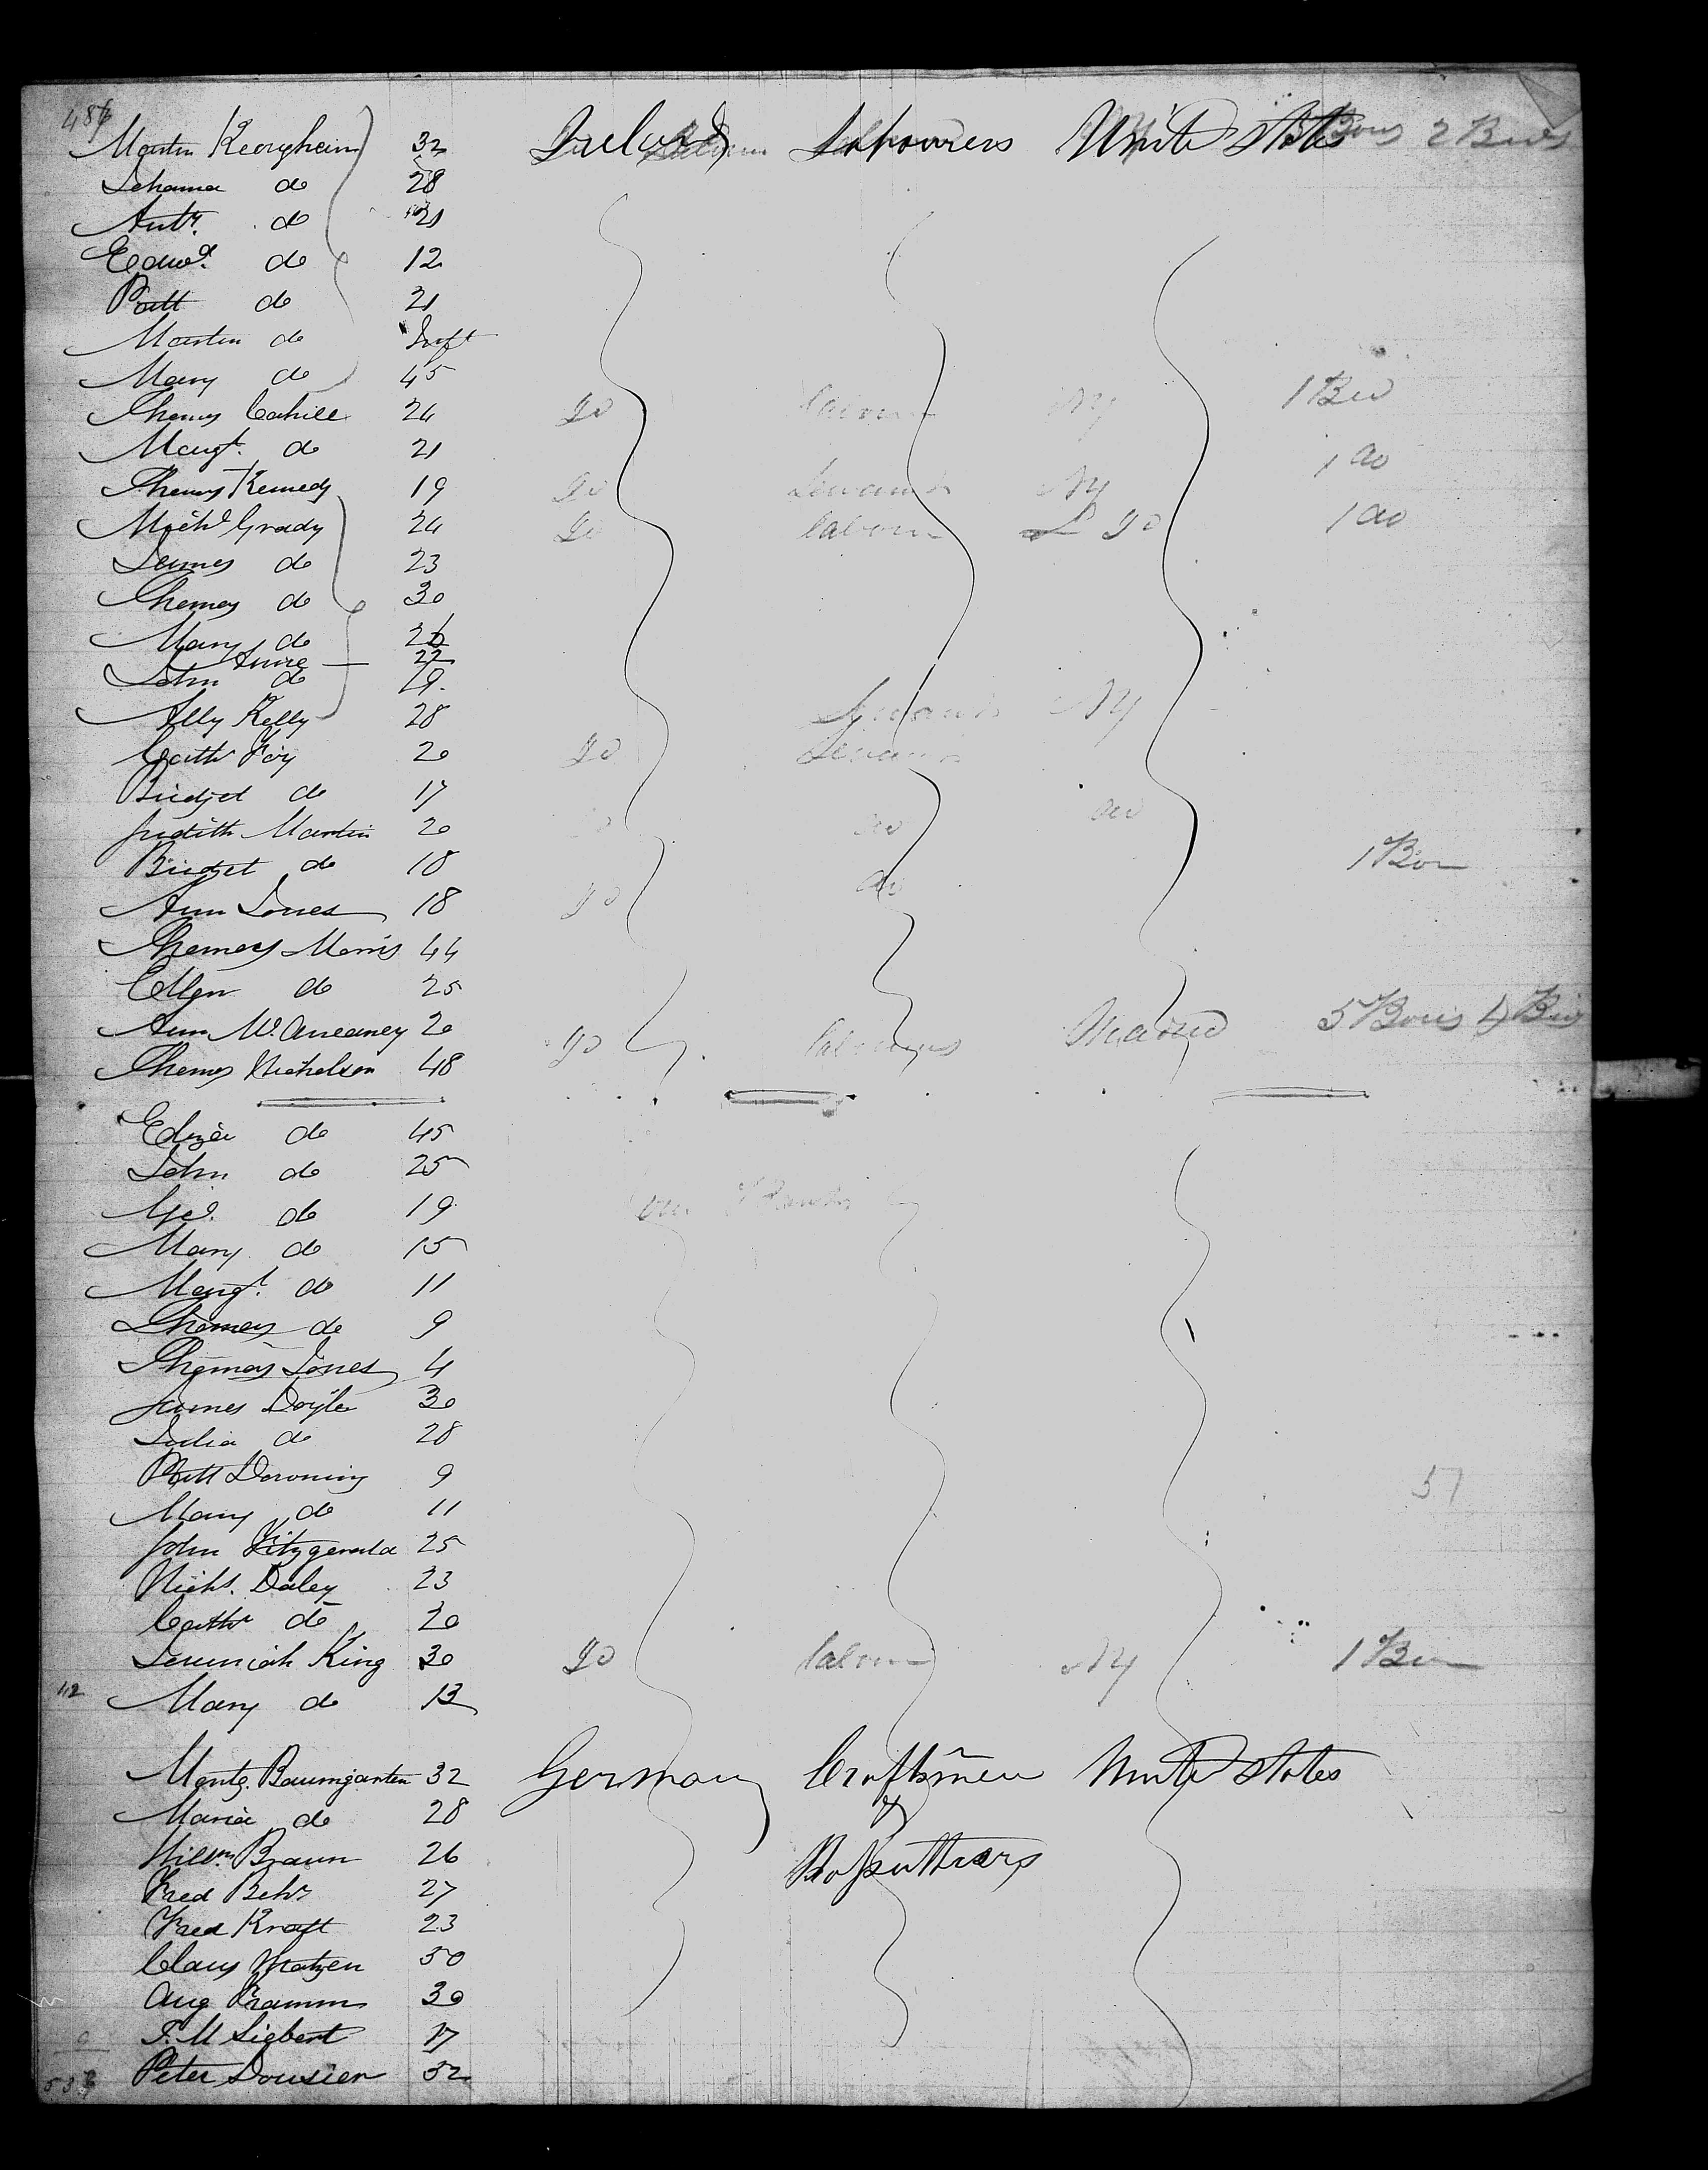 486
Martin Keargheim 32 Ireland Labourers United States 2 Bxes
Johanna do 28
Anty. do 21
Edwd. do 12
Patt do 21
Martin do Inft
Mary do 45
Thomas Cahill 24 Do labour NY 1 Bx
Margt. do 21 1 do
Thomas Kennedy 19 Do Servant NY
Michl Grady 24 Do labour Do 1 do
James do 23
Thomas do 30
Mary do
Anne — 22
John do 19
Ally Kelly 28 Servant NY
Cathe Foy 20 Do Servant
Bridjet do 17
Judith Martin 20 do do
Bridjet do 18 1 Box
Ann Jones 18 Do do
Thomas Morris 44
Ellen do 25
Ann McAneaney 20
Thomas Nicholson 48 Do labourers 5 Boxes 4
Eliza do 45
John do 25
Geo. do 19
Mary do 15
Margt. do 11
Thomas do 9
Thomas Jones 4
James Doyle 30
Julia do 28
Patt Downing 9 57
Mary do 11
John Fitzgerald 25
Nichs. Daley 23
Cathe do 20
Jeremiah King 30 Do labour NY 1 Box
112 Mary do 13
Montg. Baumgarten 32 Germany Craftsmen United States
Maria do 28 &
Willm. Braun 26
Fred Behr 27
Fred Kraft 23
Claus Matzen 50
Aug Framm 30
F. M Siebert 17
Peter Dousien 52